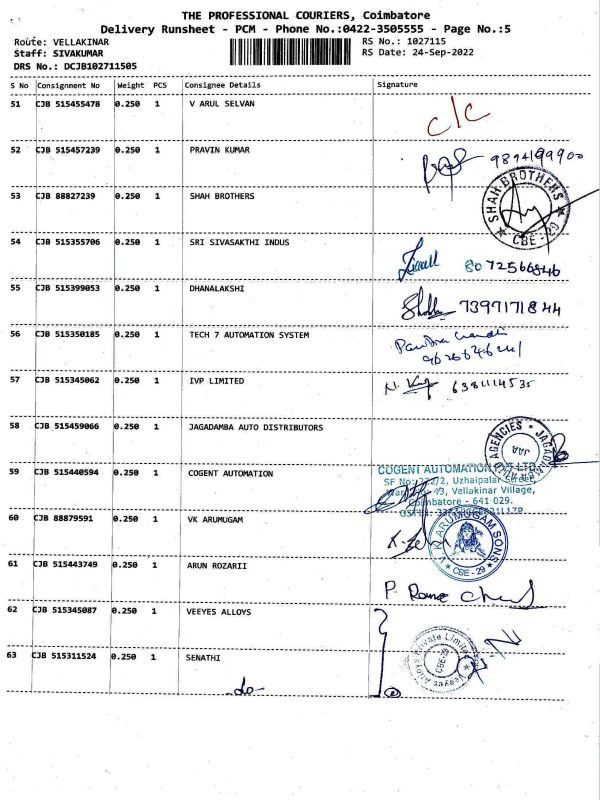 THE PROFESSIONAL COURIERS, Coimbatore
Delivery Runsheet - PCM - Phone No.:0422-3505555 - Page No.:5
Route: VELLAKINAR
RS No.: 1027115
Staff: SIVAKUMAR
RS Date: 24-Sep-2022
DRS No.: DCJB102711505
S No Consignment No Weight PCS Consignee Details Signature
51 CJB 515455478 0.250 1 V ARUL SELVAN
c/c
52 CJB 515457239 0.250 1 PRAVIN KUMAR
9894199900
53 CJB 88827239 0.250 1 SHAH BROTHERS
SHAH BROTHERS
CBE - 29
54 CJB 515355706 0.250 1 SRI SIVASAKTHI INDUS
8072566846
55 CJB 515399053 0.250 1 DHANALAKSHI
7397171844
56 CJB 515350185 0.250 1 TECH 7 AUTOMATION SYSTEM
57 CJB 515345062 0.250 1 IVP LIMITED
58 CJB 515459066 0.250 1 JAGADAMBA AUTO DISTRIBUTORS
AGENCIES
JAA
59 CJB 515440594 0.250 1 COGENT AUTOMATION
COGENT AUTOMATION PVT LTD
Uzhaipalar Street,
43, Vellakinar Village,
Coimbatore - 641 029.
60 CJB 88879591 0.250 1 VK ARUMUGAM
V.K. ARUMUGAM SONS
CBE - 29
61 CJB 515443749 0.250 1 ARUN ROZARII
62 CJB 515345087 0.250 1 VEEYES ALLOYS
Veeyes Alloys Private Limited
CBE-29
63 CJB 515311524 0.250 1 SENATHI
-do-